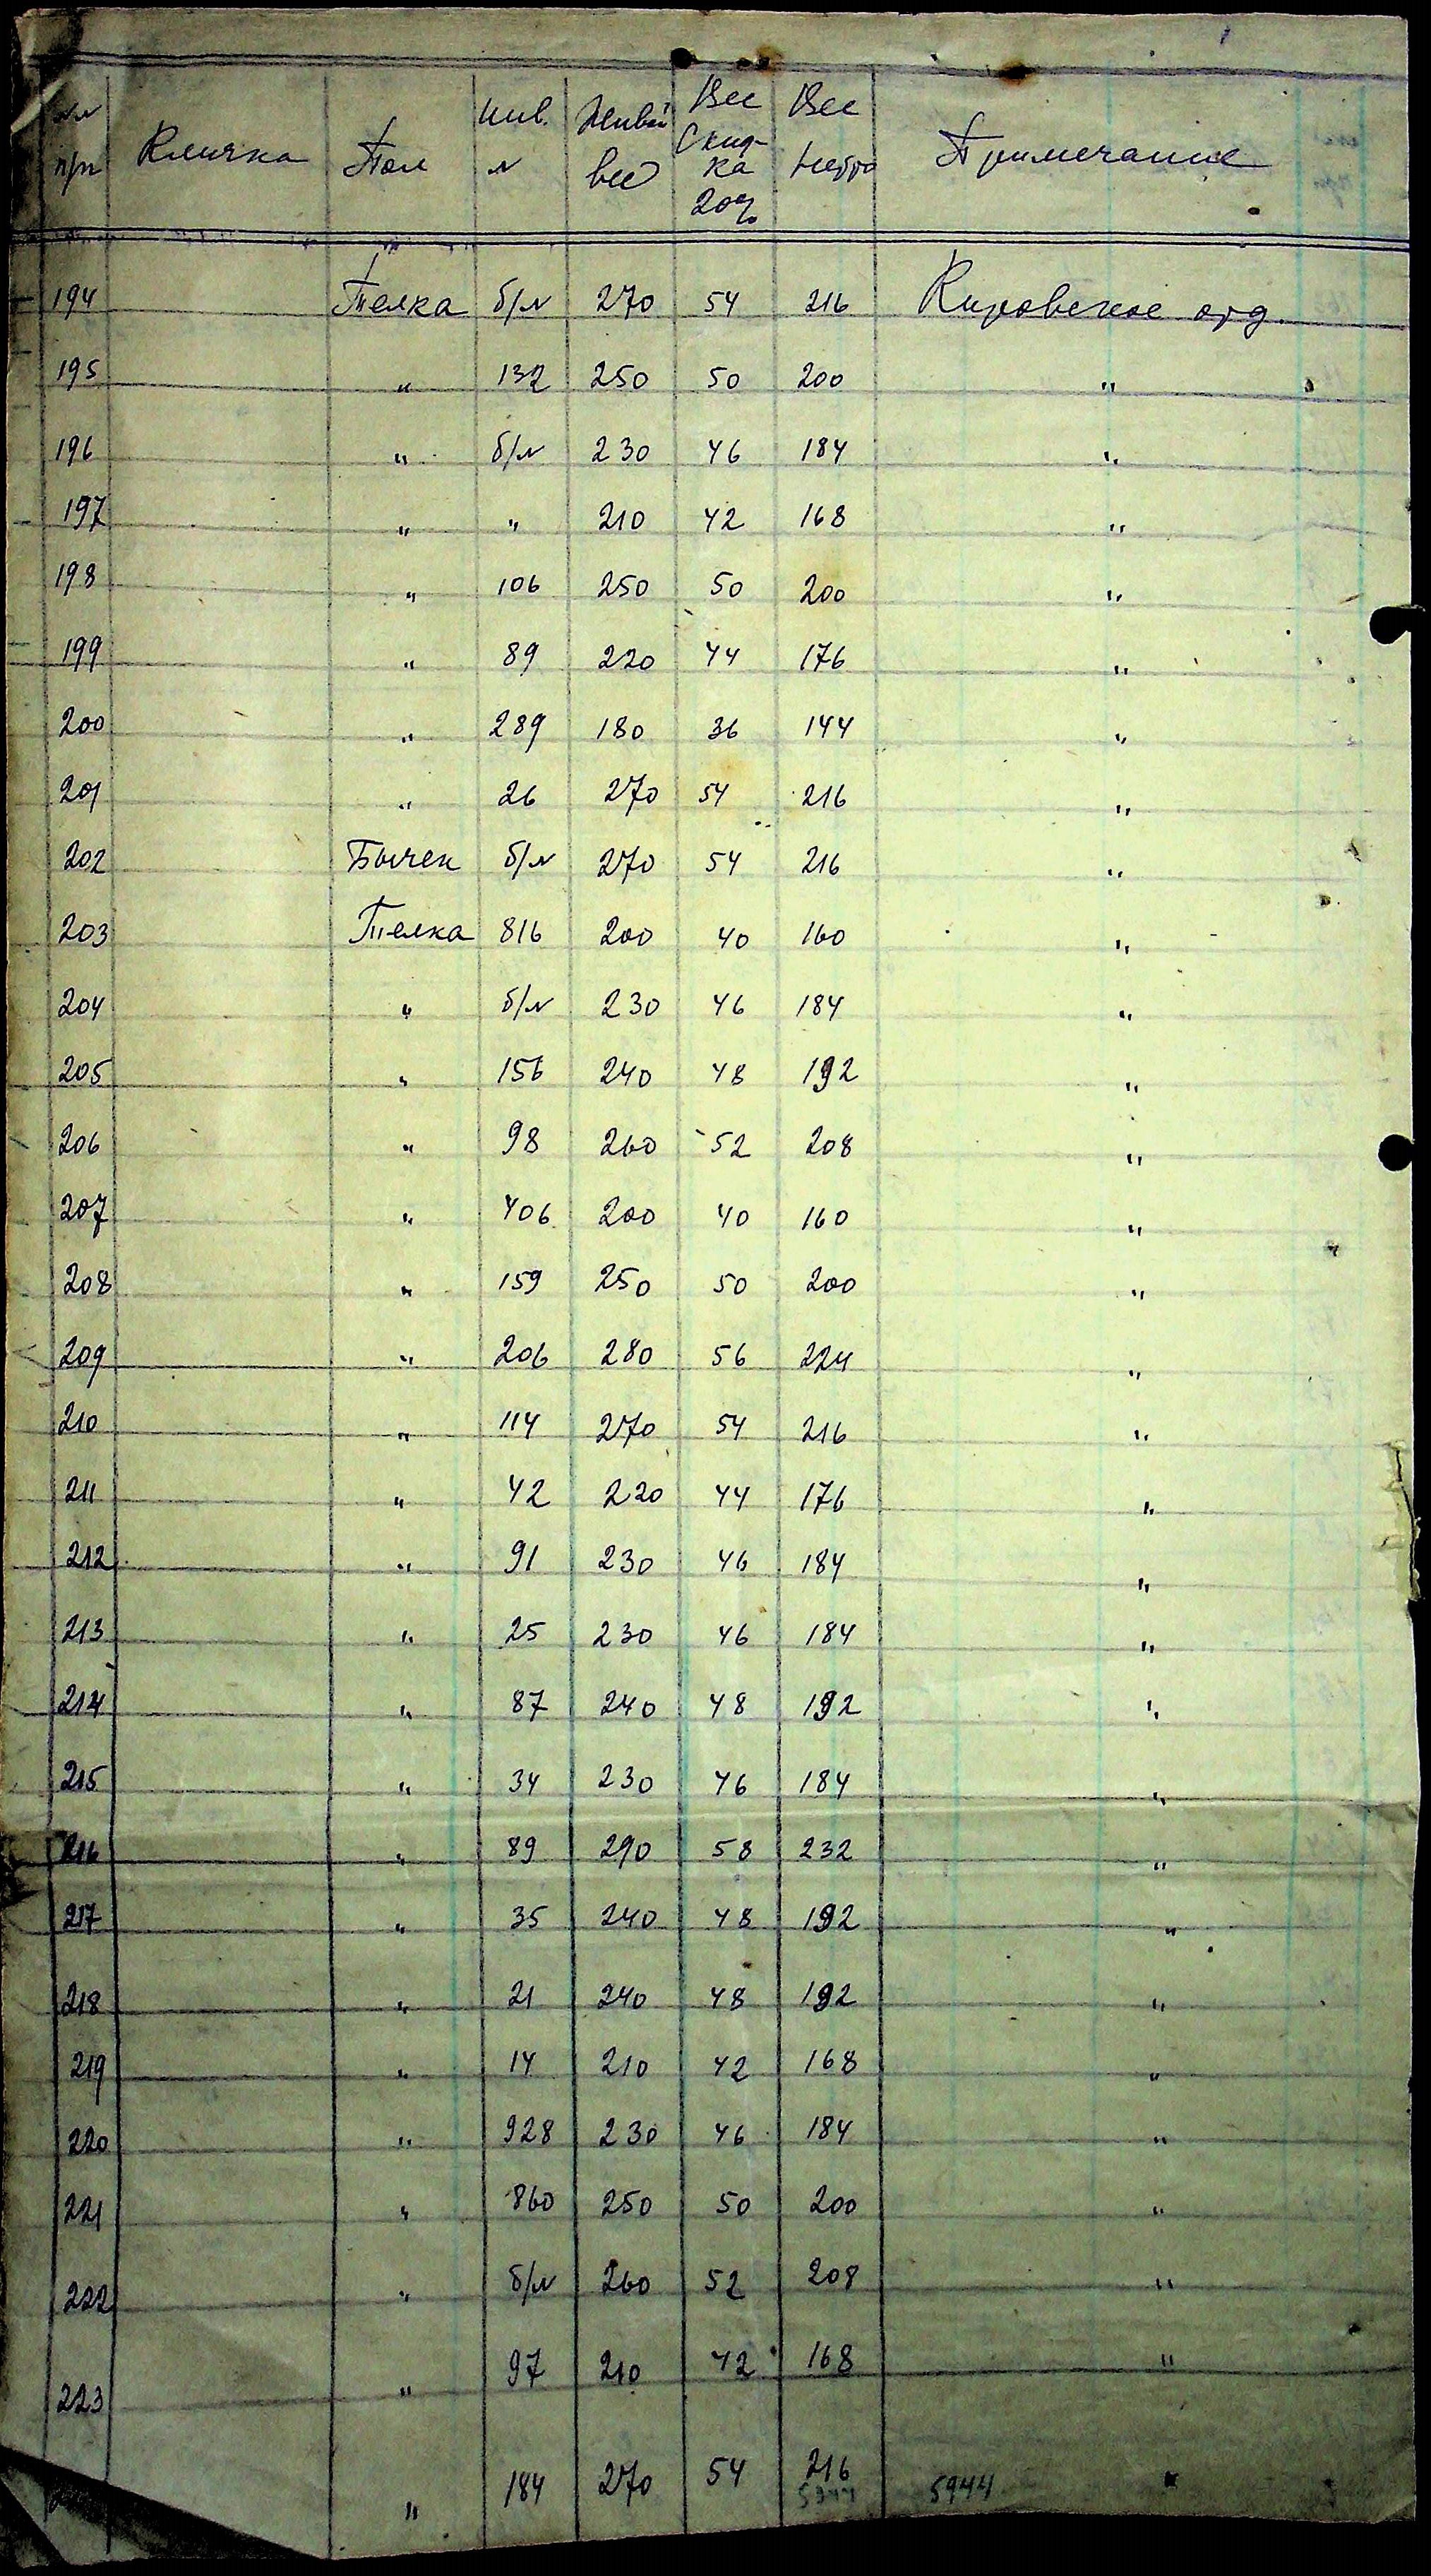 №№ п/п Кличка Пол Инв. № Живой вес Вес Скид-ка 20% Вес нетто Примечание
194 Телка б/№ 270 54 216 Кировское отд.
195 " 132 250 50 200 "
196 " б/№ 230 46 184 "
197 " " 210 42 168 "
198 " 106 250 50 200 "
199 " 89 220 44 176 "
200 " 289 180 36 144 "
201 " 26 270 54 216 "
202 Бычек б/№ 270 54 216 "
203 Телка 816 200 40 160 "
204 " б/№ 230 46 184 "
205 " 156 240 48 192 "
206 " 98 260 52 208 "
207 " 406 200 40 160 "
208 " 159 250 50 200 "
209 " 206 280 56 224 "
210 " 114 270 54 216 "
211 " 42 220 44 176 "
212 " 91 230 46 184 "
213 " 25 230 46 184 "
214 " 87 240 48 192 "
215 " 34 230 46 184 "
216 " 89 290 58 232 "
217 " 35 240 48 192 "
218 " 21 240 48 192 "
219 " 14 210 42 168 "
220 " 928 230 46 184 "
221 " 860 250 50 200 "
222 " б/№ 260 52 208 "
223 " 97 210 42 168 "
" 184 270 54 216 "
5944 5944